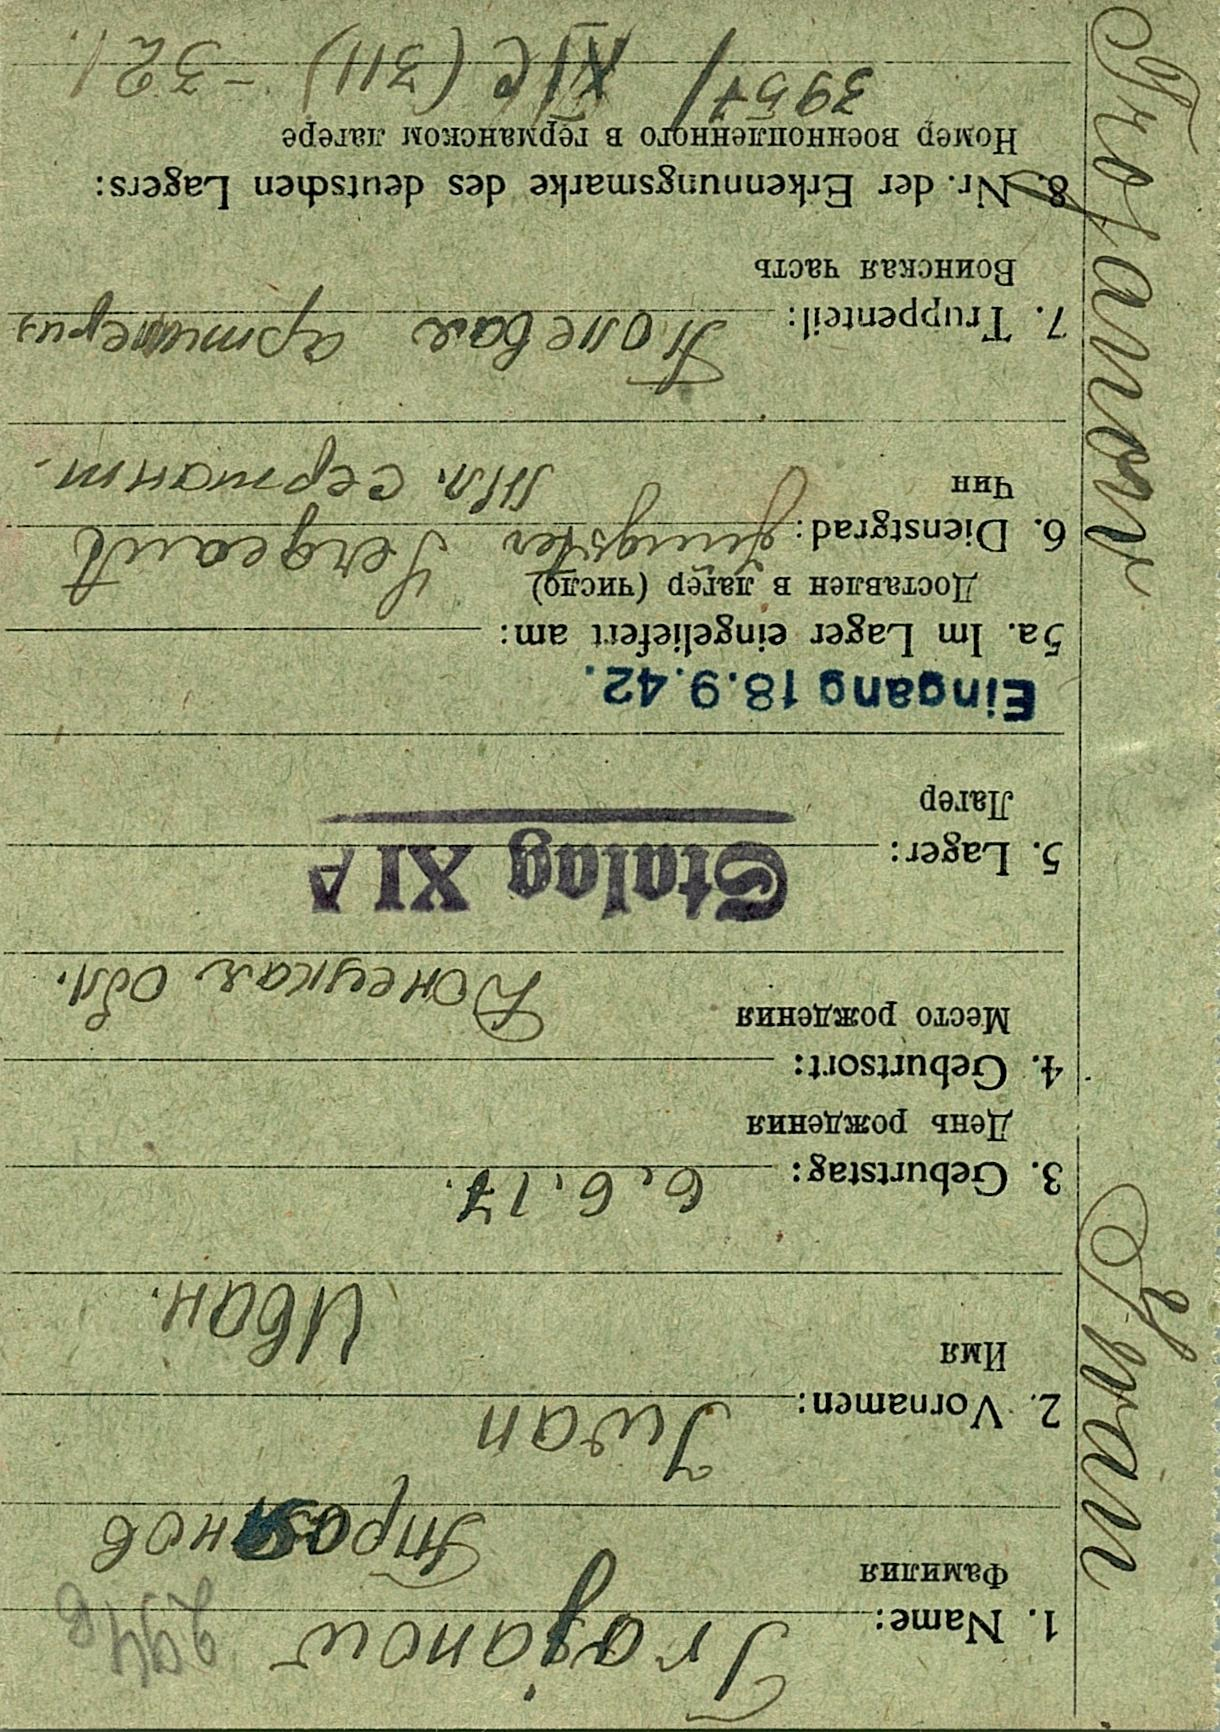 Trojanow
1. Name:
294B
Фамилия
Троянов
Iwan
2. Vornamen:
Имя
Иван.
3. Geburtstag: 6.6.17.
День рождения
4. Geburtsort:
Место рождения
Донецкая обл.
Stalag XI A
5. Lager:
Лагер
Eingang 18.9.42.
5a. Im Lager eingeliefert am:
Доставлен в лагер (число)
6. Dienstgrad: jüngster Sergeant
Чин
Мл. сержант.
7. Truppenteil: Полевая артилерия
Воинская часть
8. Nr. der Erkennungsmarke des deutschen Lagers:
Номер военнопленного в германском лагере
3957/ XI C (311) - 321.
Iwan Trojanow